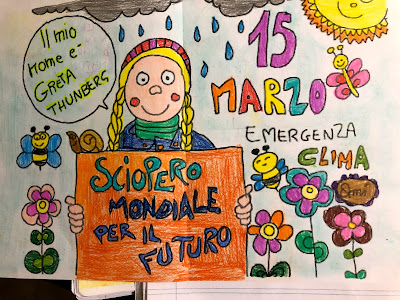 Il mio
nome è
GRETA
THUNBERG
15
MARZO
EMERGENZA
CLIMA
SCIOPERO
MONDIALE
PER IL
FUTURO